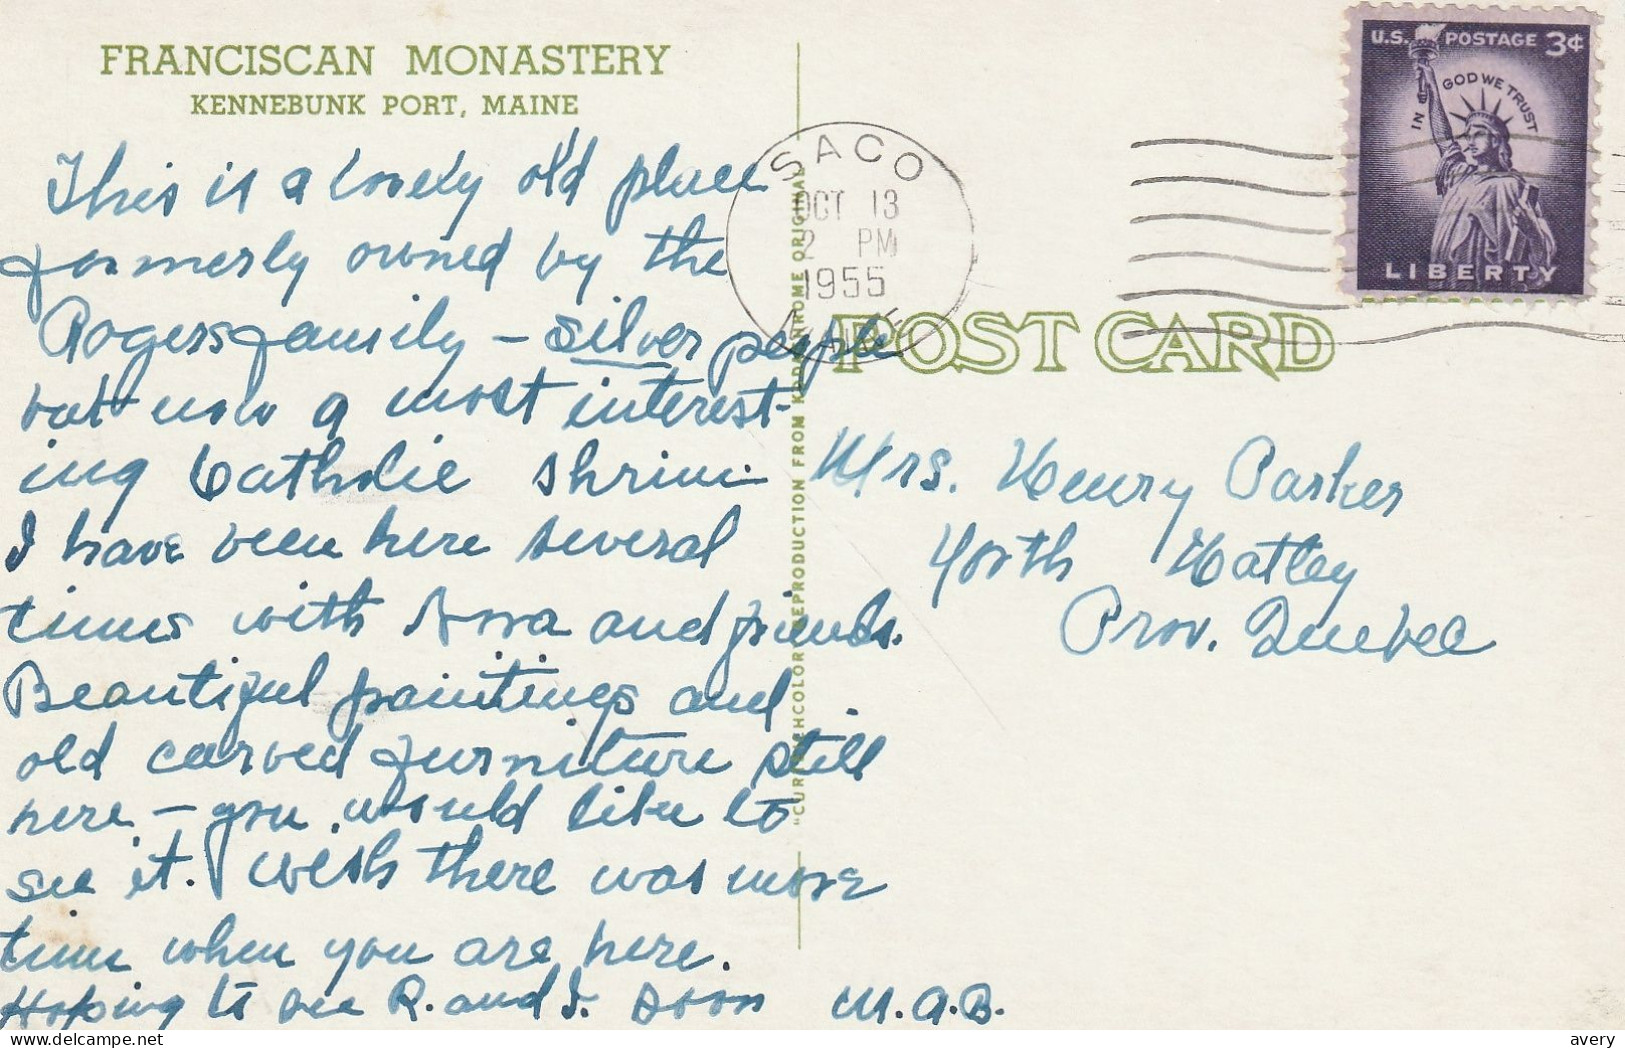 FRANCISCAN MONASTERY
KENNEBUNK PORT, MAINE
This is a lovely old place
formerly owned by the
Rogers family – silver people
but now a most interest-
ing Catholic shrine
I have been here several
times with and friends.
Beautiful paintings and
old carved furniture still
here – you would like to
see it. Wish there was more
time when you are here.
Hoping to see R. and J. soon
M.A.B.
SACO
OCT 13
2 PM
1955
MAINE
U.S. POSTAGE 3¢
IN GOD WE TRUST
LIBERTY
POST CARD
"CURTEICHCOLOR" REPRODUCTION FROM KODACHROME ORIGINAL
Mrs. Henry Parker
North Hatley
Prov. Quebec
delcampe.net
avery